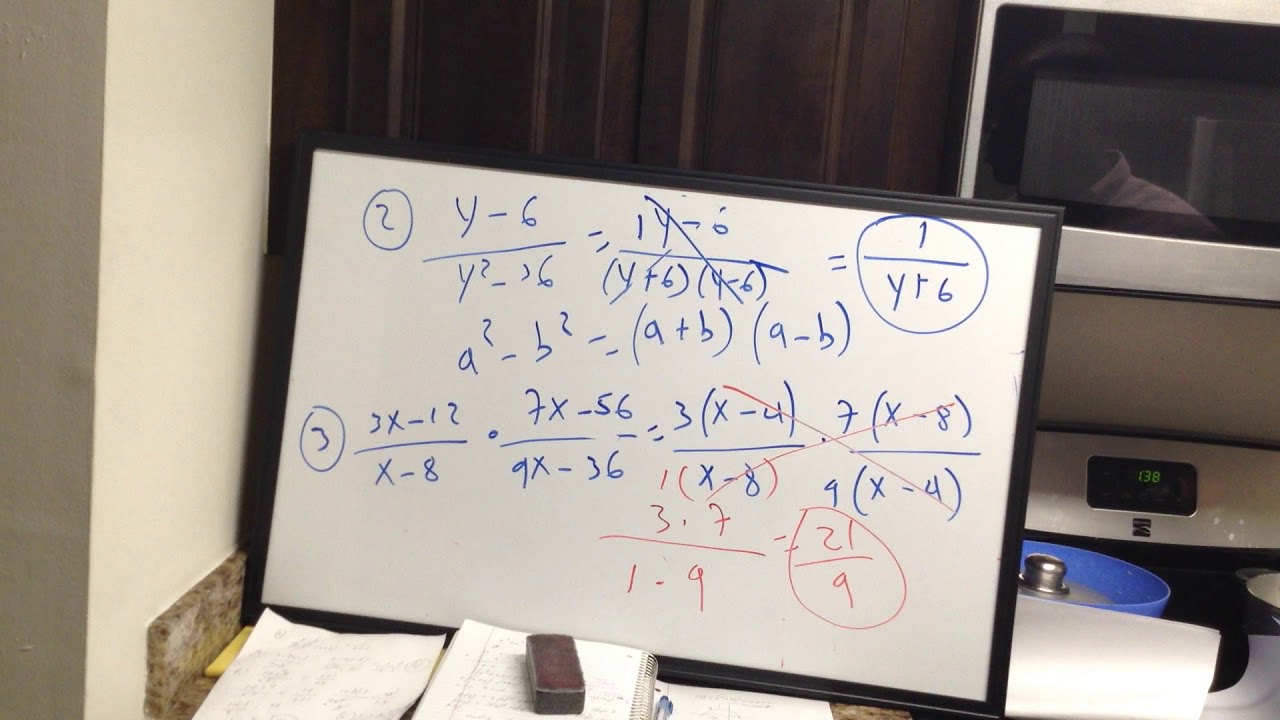 ② y-6/y²-36 = 1y-6/(y+6)(y-6) = 1/y+6
a²-b² = (a+b)(a-b)
③ 3x-12/x-8 · 7x-56/9x-36 = 3(x-4)/1(x-8) · 7(x-8)/9(x-4)
3·7/1·9 = 21/9
1:38